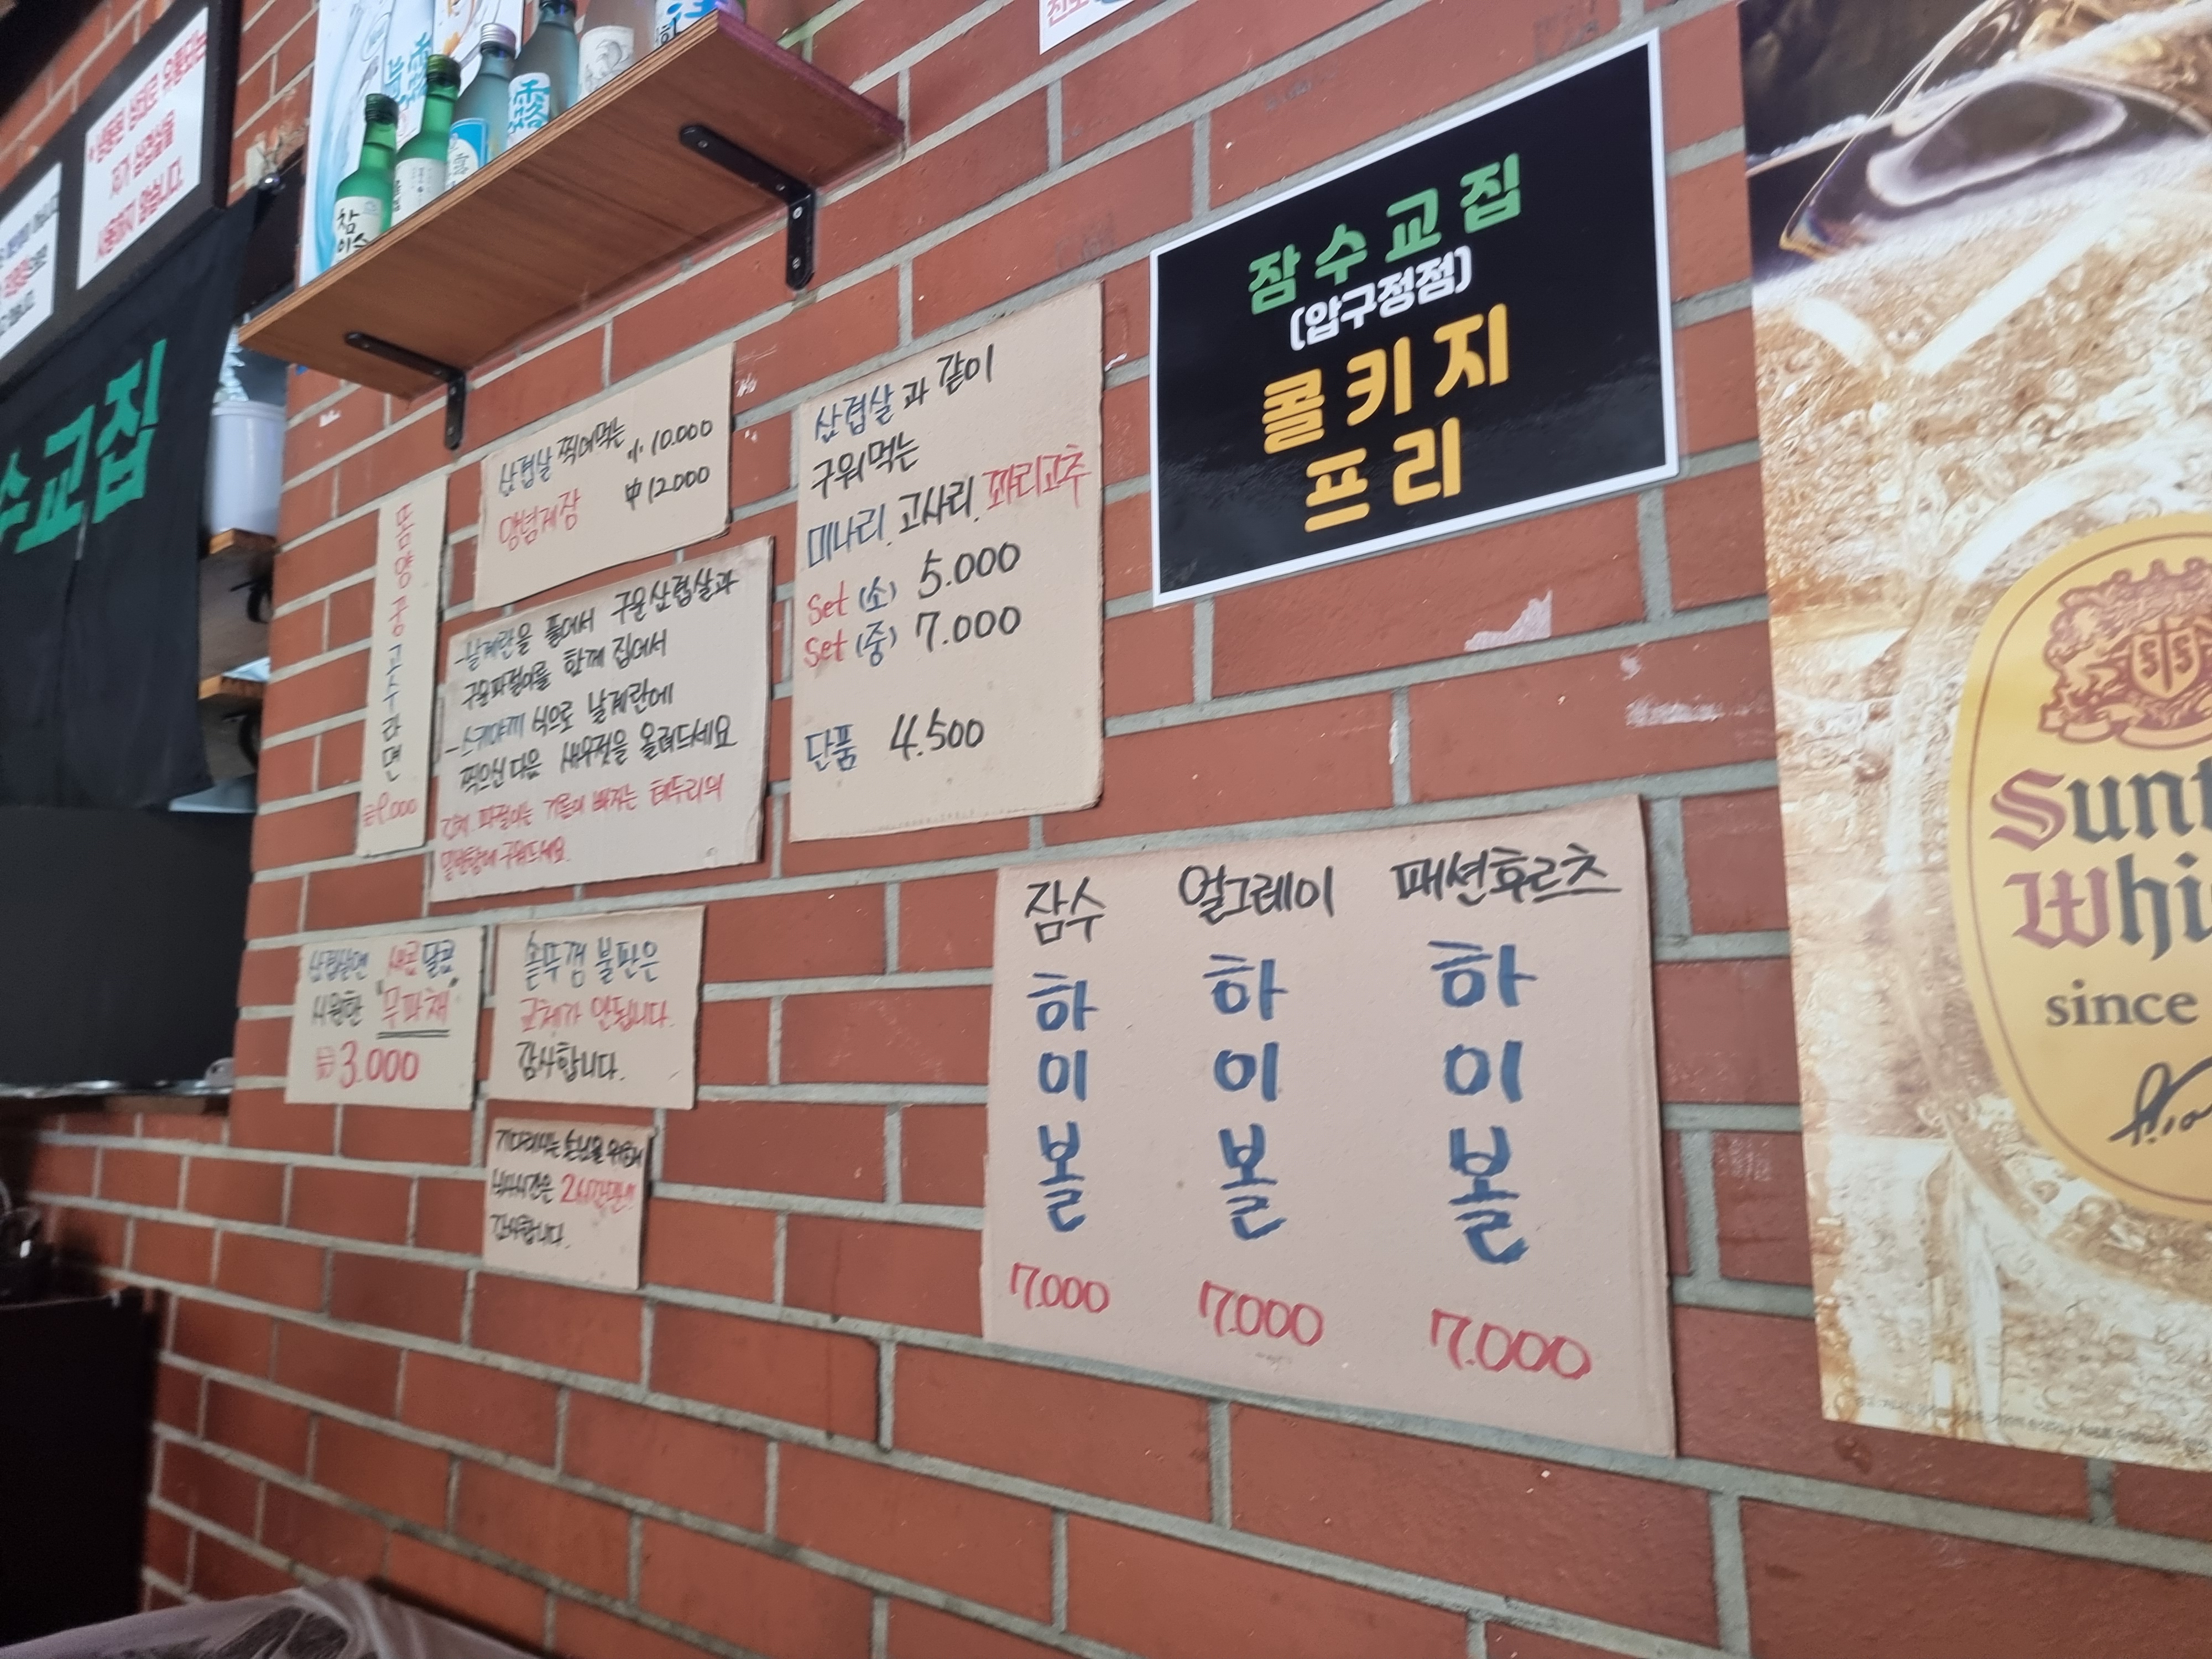 *냉동돈 생고기로 유통되는
저가 삼겹살을
사용하지 않습니다.
수교집
참
이슬
잠수교집
(압구정점)
콜키지
프리
삼겹살 찍어먹는 小 10.000
양념게장 中 12.000
삼겹살과 같이
구워먹는
미나리. 고사리. 꽈리고추
Set (소) 5.000
Set (중) 7.000
단품 4.500
-날계란을 풀어서 구운삼겹살과
구운파절이를 함께 집어서
-스키야끼 식으로 날계란에
찍으신 다음 새우젓을 올려드세요
파절이는 기름이 빠지는 테두리의
구워드세요.
삼겹살엔 새콤달콤
시원한 "무파채"
3.000
솥뚜껑 불판은
교체가 안됩니다.
감사합니다.
기다리시는 손님을 위해
식사시간은 2시간만!!
감사합니다.
잠수 얼그레이 패션후르츠
하이볼 하이볼 하이볼
7.000 7.000 7.000
since